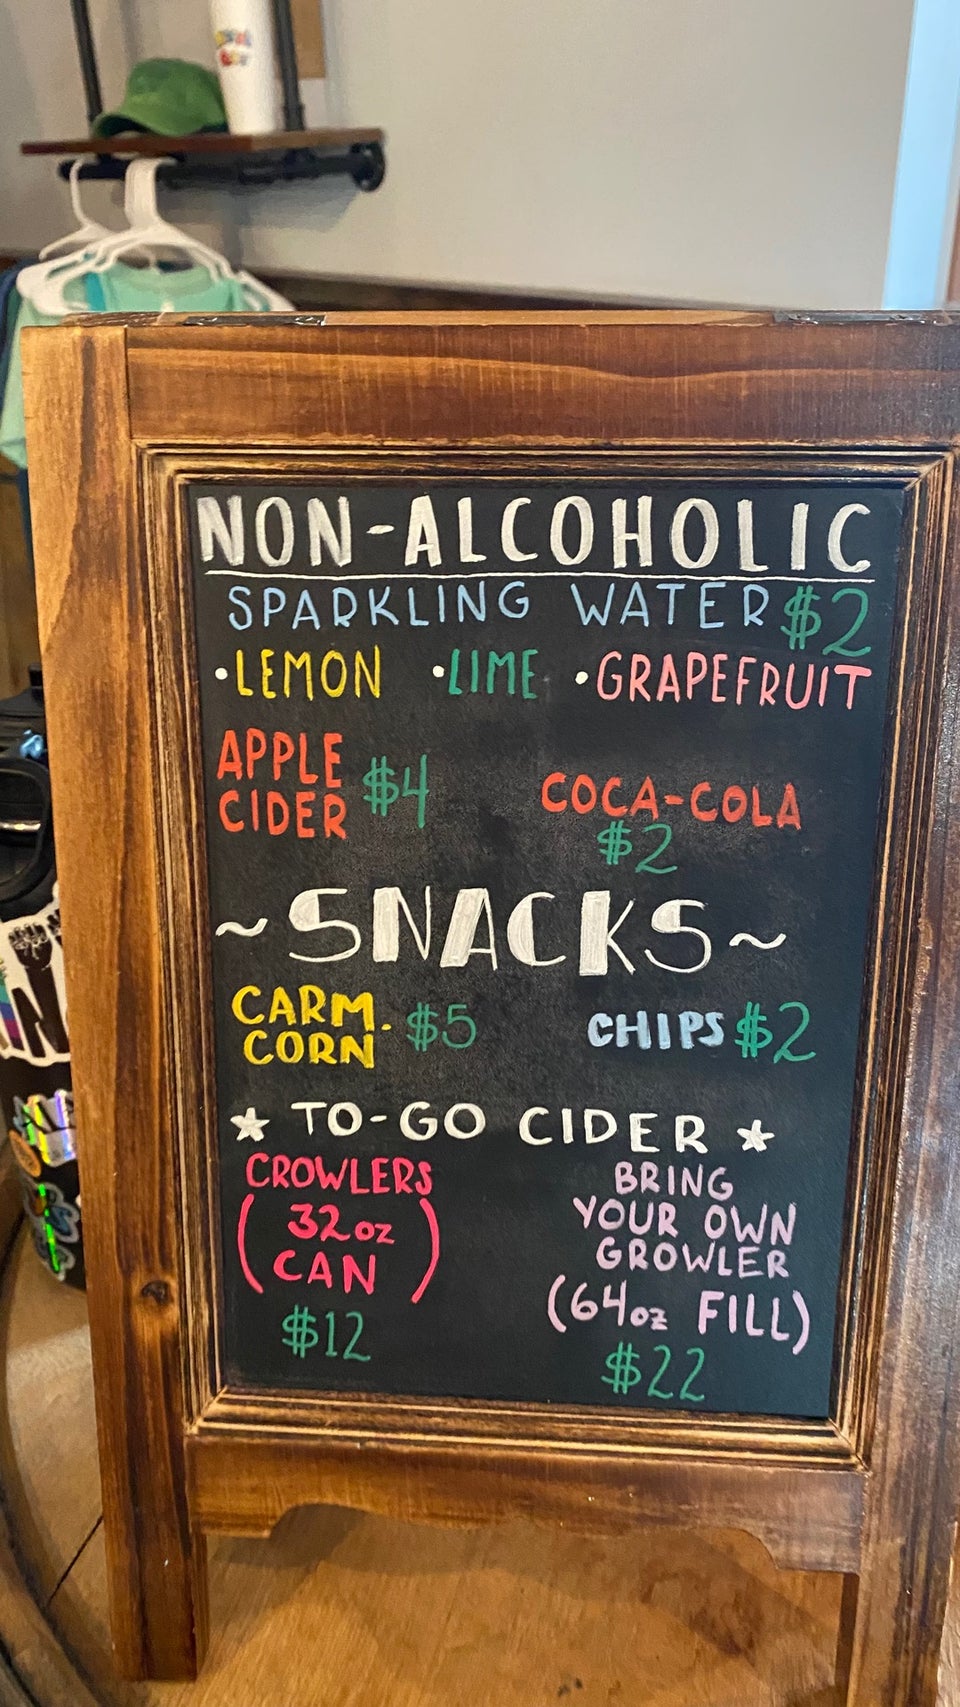 NON-ALCOHOLIC
SPARKLING WATER $2
•LEMON •LIME •GRAPEFRUIT
APPLE
CIDER $4
COCA-COLA
$2
~SNACKS~
CARM.
CORN $5
CHIPS $2
TO-GO CIDER
CROWLERS
(32oz
CAN)
$12
BRING
YOUR OWN
GROWLER
(64oz FILL)
$22